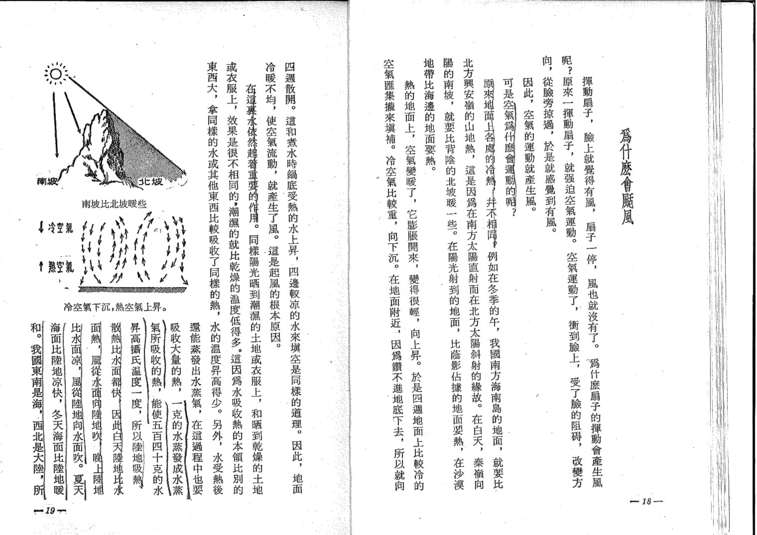 爲什麼會颳風
揮動扇子，臉上就覺得有風，扇子一停，風也就沒有了。爲什麼扇子的揮動會產生風
呢？原來一揮動扇子，就强迫空氣運動。空氣運動了，衝到臉上，受了臉的阻碍，改變方
向，從臉旁掠過，於是就感覺到有風。
因此，空氣的運動就產生風。
可是空氣爲什麼會運動的呢？
原來地面上各處的冷熱，并不相同，例如在冬季的午，我國南方海南島的地面，就要比
北方興安嶺的山地熱，這是因爲在南方太陽直射而在北方太陽斜射的緣故。在白天，秦嶺向
陽的南坡，就要比背陰的北坡暖一些。在陽光射到的地面，比蔭影佔據的地面要熱，在沙漠
地帶比海邊的地面要熱。
熱的地面上，空氣變暖了，它膨脹開來，變得很輕，向上昇。於是四週地面上比較冷的
空氣匯集攏來塡補。冷空氣比較重，向下沉。在地面附近，因爲鑽不進地底下去，所以就向
—18—
四週散開。這和煮水時鍋底受熱的水上昇，四邊較凉的水來塡空是同樣的道理。因此，地面
冷暖不均，使空氣流動，就產生了風。這是起風的根本原因。
在這裏水依然起着重要的作用。同樣陽光晒到潮濕的土地或衣服上，和晒到乾燥的土地
或衣服上，效果是很不相同的，潮濕的就比乾燥的溫度低得多。這因爲水吸收熱的本領比別的
東西大，拿同樣的水或其他東西比較吸收了同樣的熱，水的溫度昇高得少。另外，水受熱後
還能蒸發出水蒸氣，在這過程中也要
吸收大量的熱，一克的水蒸發成水蒸
氣所吸收的熱，能使五百四十克的水
昇高攝氏溫度一度，所以陸地吸熱
散熱比水面都快，因此白天陸地比水
面熱，風從水面向陸地吹，晚上陸地
比水面凉，風從陸地向水面吹。夏天
海面比陸地凉快，冬天海面比陸地暖
和。我國東南是海，西北是大陸，所
南坡
北坡
南坡比北坡暖些
↓冷空氣
↑熱空氣
冷空氣下沉，熱空氣上昇。
—19—